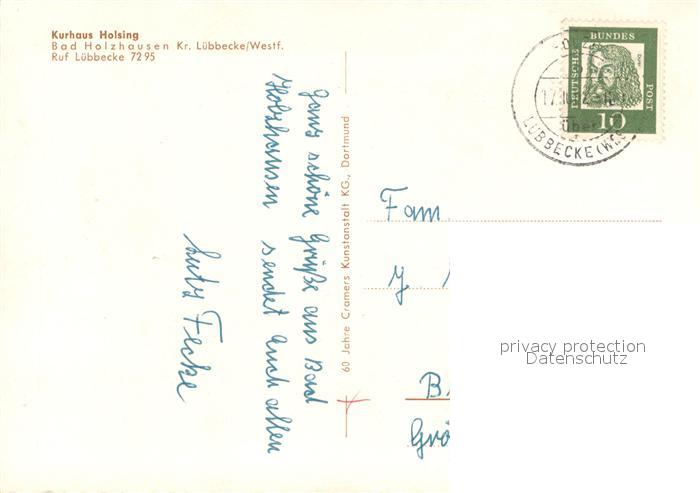 Kurhaus Holsing
Bad Holzhausen Kr. Lübbecke/Westf.
Ruf Lübbecke 7295
DEUTSCHE BUNDES POST
10
über
LÜBBECKE (WES
60 Jahre Cramers Kunstanstalt KG., Dortmund
Ganz schöne Grüße aus Bad
Holzhausen sendet Euch allen
Lutz Fecke
Fam.
B
Grö
privacy protection
Datenschutz